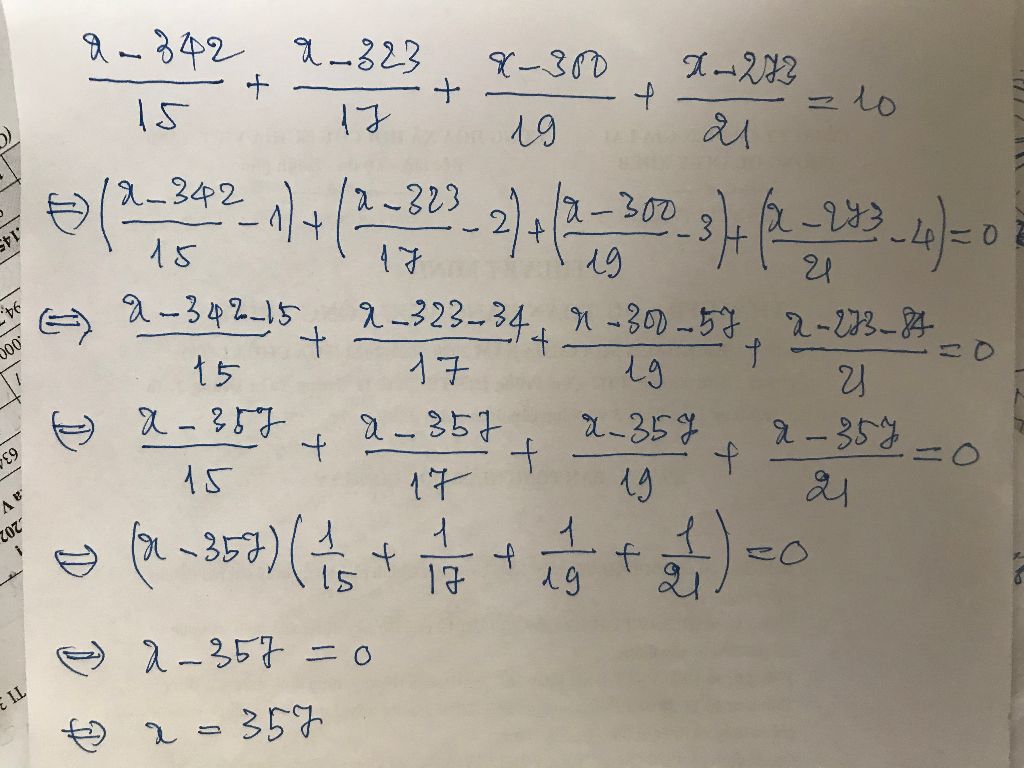 x - 342 / 15 + x - 323 / 17 + x - 300 / 19 + x - 273 / 21 = 10
⇔ (x - 342 / 15 - 1) + (x - 323 / 17 - 2) + (x - 300 / 19 - 3) + (x - 273 / 21 - 4) = 0
⇔ x - 342 - 15 / 15 + x - 323 - 34 / 17 + x - 300 - 57 / 19 + x - 273 - 84 / 21 = 0
⇔ x - 357 / 15 + x - 357 / 17 + x - 357 / 19 + x - 357 / 21 = 0
⇔ (x - 357) (1 / 15 + 1 / 17 + 1 / 19 + 1 / 21) = 0
⇔ x - 357 = 0
⇔ x = 357